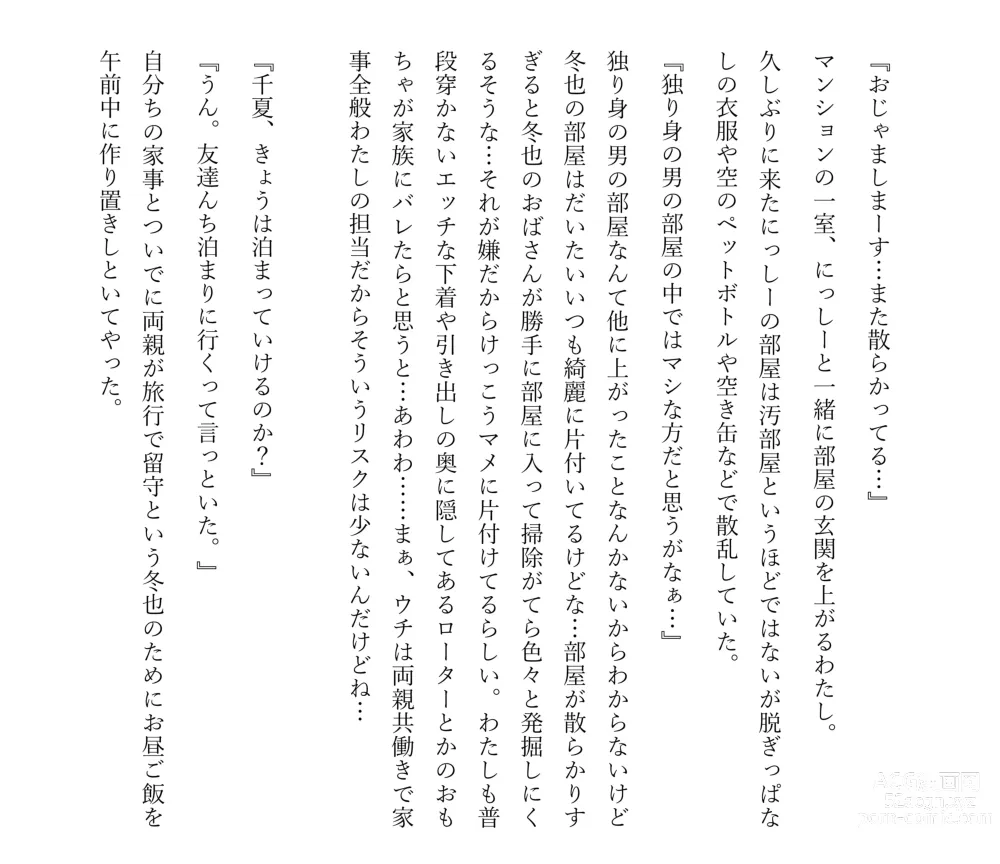 『おじゃましまーす…また散らかってる…』
マンションの一室、にっしーと一緒に部屋の玄関を上がるわたし。
久しぶりに来たにっしーの部屋は汚部屋というほどではないが脱ぎっぱな
しの衣服や空のペットボトルや空き缶などで散乱していた。
『独り身の男の部屋の中ではマシな方だと思うがなぁ…』
独り身の男の部屋なんて他に上がったことなんかないからわからないけど
冬也の部屋はだいたいいつも綺麗に片付いてるけどな…部屋が散らかりす
ぎると冬也のおばさんが勝手に部屋に入って掃除がてら色々と発掘しにく
るそうな…それが嫌だからけっこうマメに片付けてるらしい。わたしも普
段穿かないエッチな下着や引き出しの奥に隠してあるローターとかのおも
ちゃが家族にバレたらと思うと…あわわ……まぁ、ウチは両親共働きで家
事全般わたしの担当だからそういうリスクは少ないんだけどね…
『千夏、きょうは泊まっていけるのか？』
『うん。友達んち泊まりに行くって言っといた。』
自分ちの家事とついでに両親が旅行で留守という冬也のためにお昼ご飯を
午前中に作り置きしといてやった。